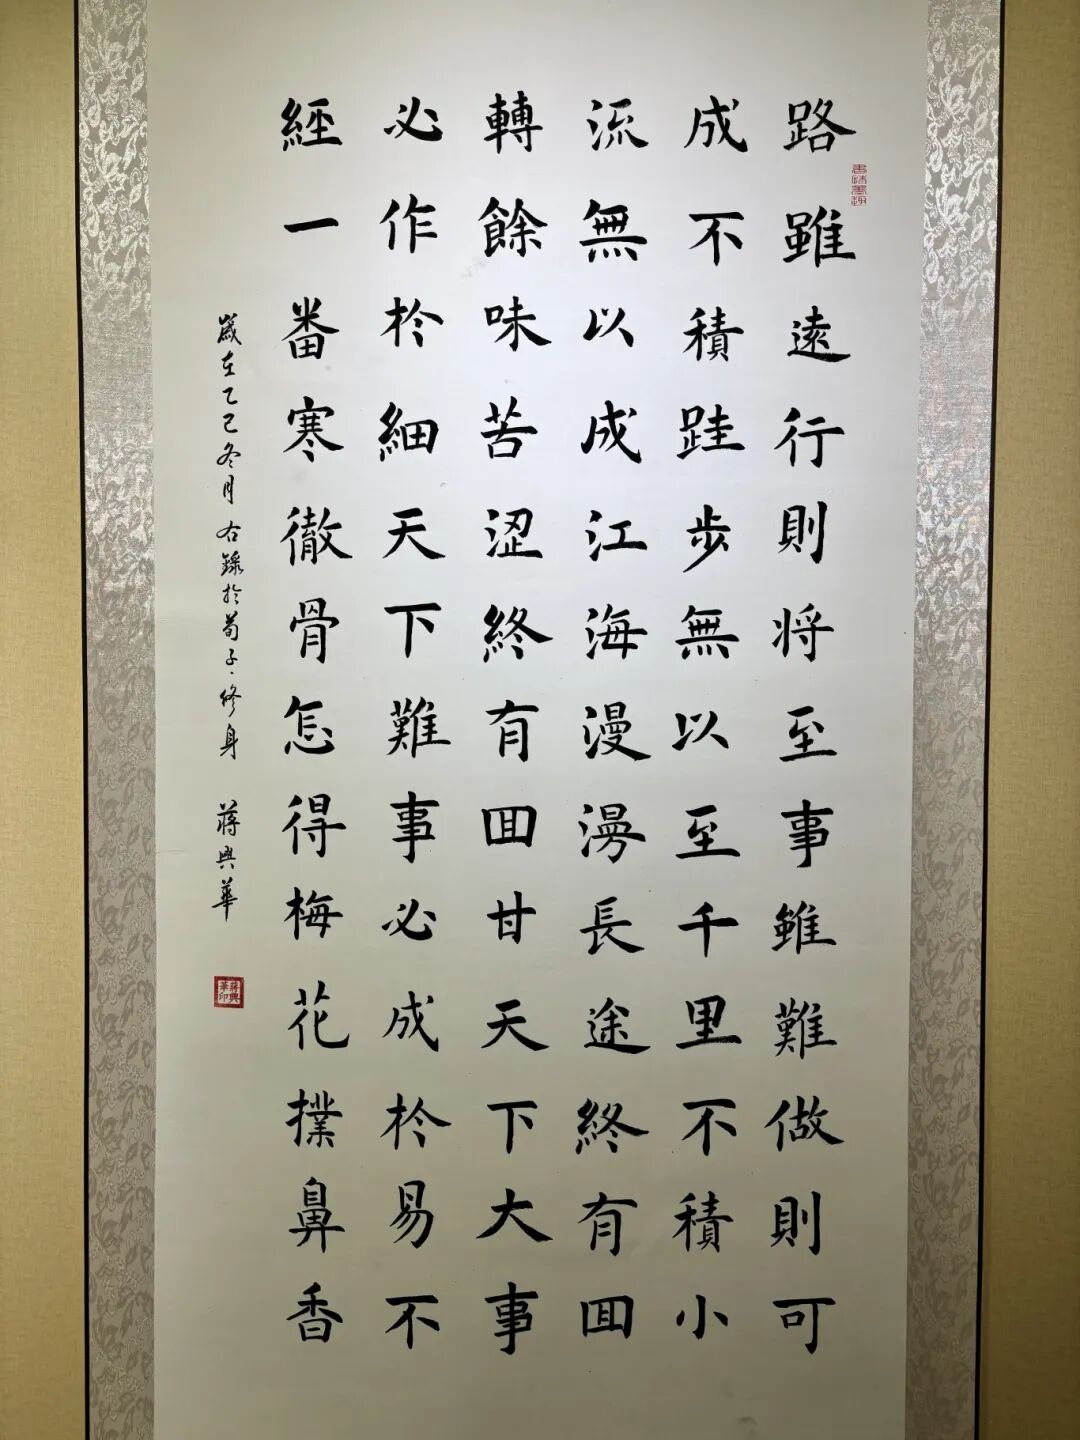 路雖遠行則将至事雖難做則可
成不積跬步無以至千里不積小
流無以成江海漫漫長途終有囬
轉餘味苦涩終有囬甘天下大事
必作扵細天下難事必成扵易不
經一番寒徹骨怎得梅花撲鼻香
歲在乙巳冬月右錄於荀子·修身 蔣興華
蔣興華印